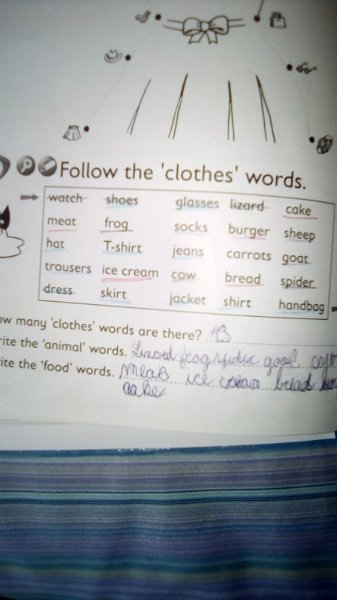 Follow the 'clothes' words.
watch shoes glasses lizard cake
meat frog socks burger sheep
hat T-shirt jeans carrots goat
trousers ice cream cow bread spider
dress skirt jacket shirt handbag
ow many 'clothes' words are there? 13
rite the 'animal' words. Lizard frog spider
rite the 'food' words. meat ice cream bread
cake